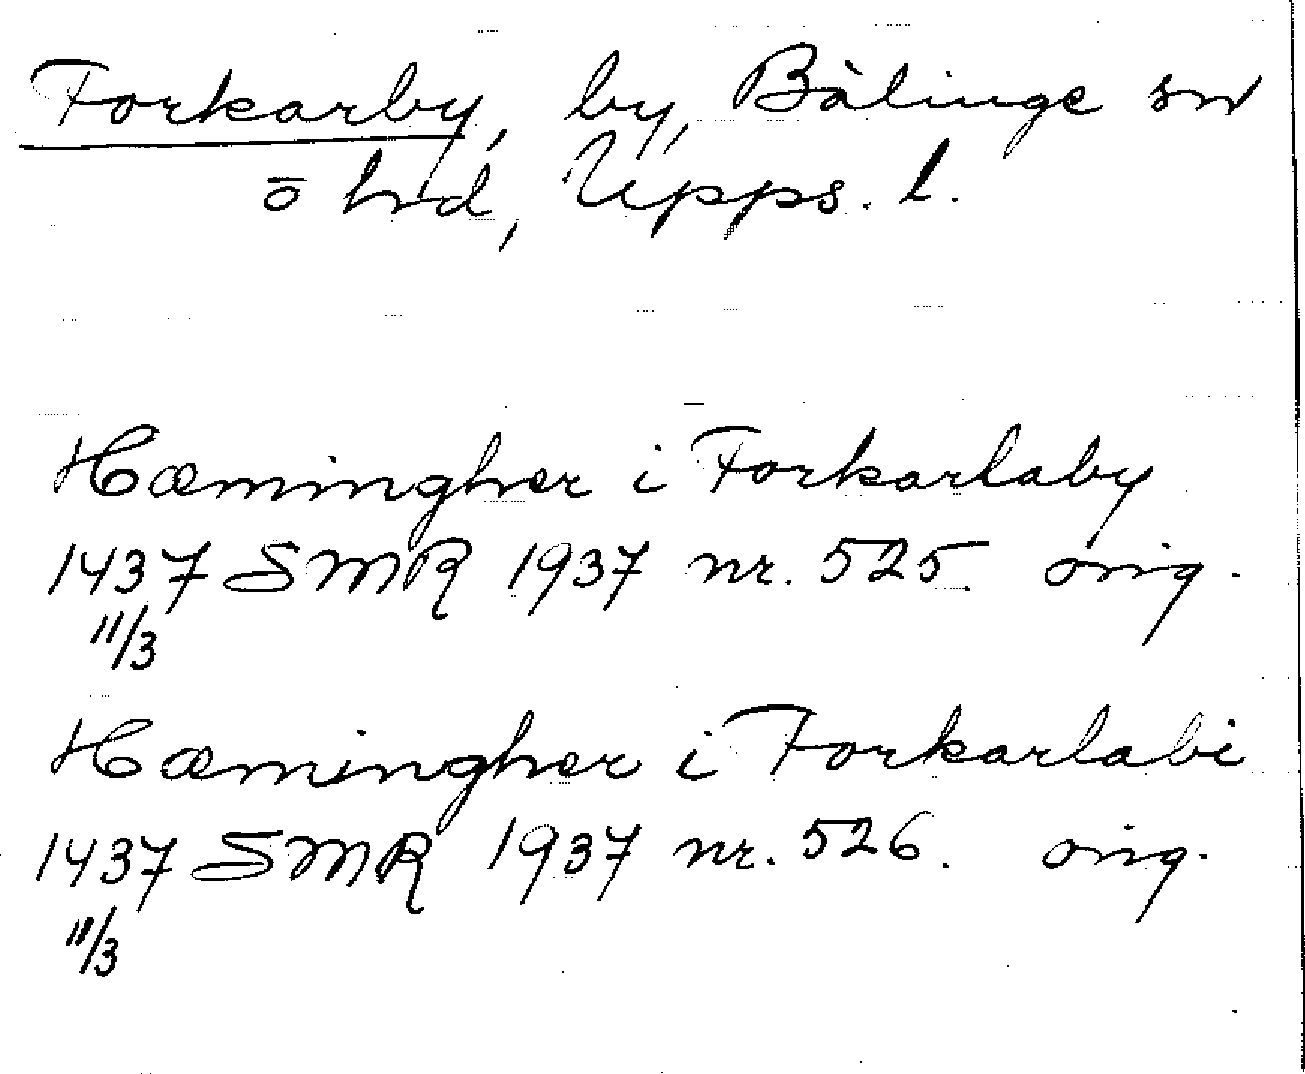 Forkarby, by, Bälinge sn
o hd, Upps. l.
Hæmingher i Forkarlaby
1437 SMR 1937 nr. 525. orig.
11/3
Hæmingher i Forkarlabi
1437 SMR 1937 nr. 526. orig.
11/3